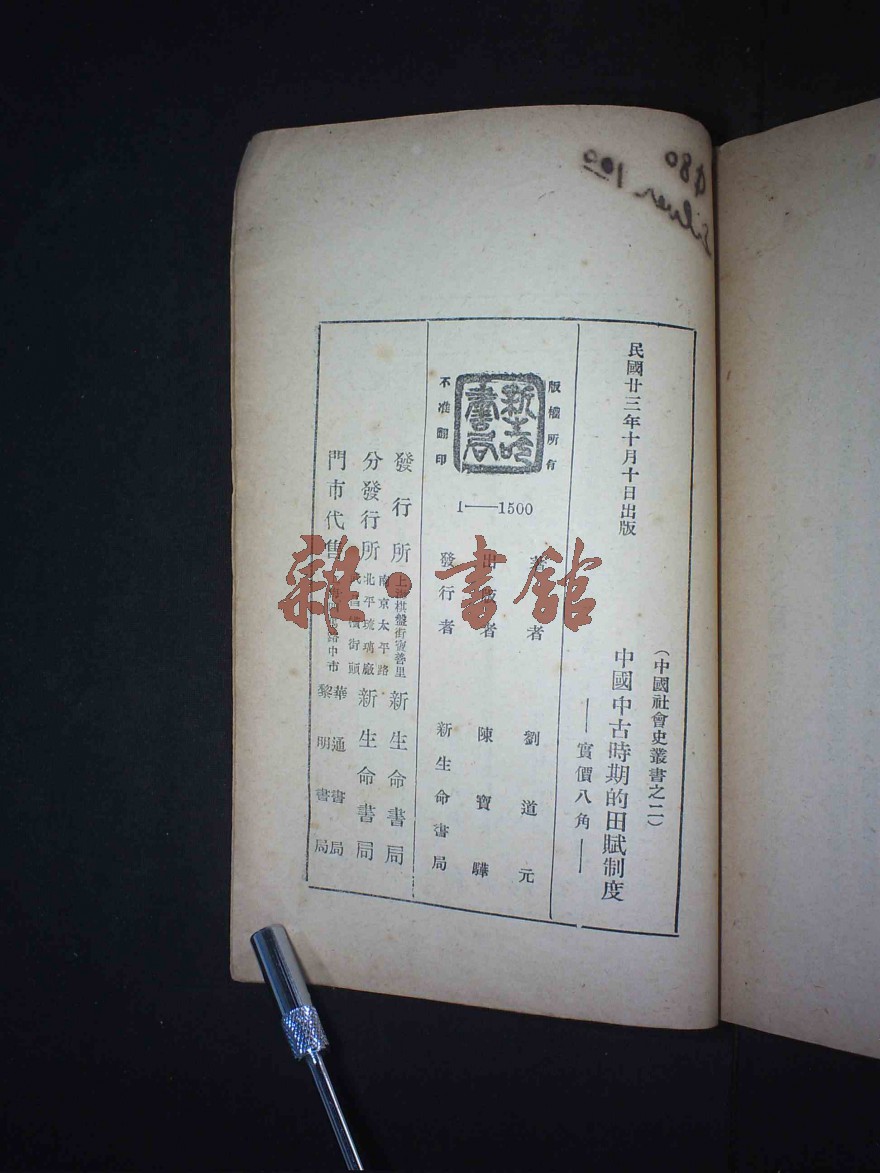 民國廿三年十月十日出版
（中國社會史叢書之二）
中國中古時期的田賦制度
——實價八角——
著者 劉道元
出版者 陳寶驊
發行者 新生命書局
版權所有
新生命書局
不准翻印
1——1500
發行所 上海棋盤街寶善里 新生命書局
分發行所 南京太平路 北平琉璃廠 武昌橫街頭 新生命書局
門市代售 中市 華通書局 黎明書局
雜·書館
$80
Silver 100